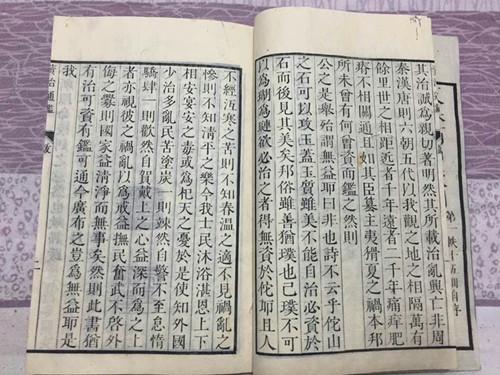 第一帙十五冊自序
其治誠為親切著明然其所載治亂興亡非周
秦漢唐則六朝五代以我觀之地之相隔萬有
餘里世之相距近者千年遠者二千年痛痒肥
瘠不相關通且如其臣篡主夷猾夏之禍本邦
所未曾有何曾資而鑑之然則
公之是舉殆謂無益耶曰非也詩不云乎佗山
之石可以攻玉蓋玉質雖美不能自治必資於
石而後見其美矣邦俗雖善猶璞也已璞不可
以為瑚為璉欲必治之者得無資於佗且人
不經沍寒之苦則不知春溫之適不見禍亂之
慘則不知清平之樂今我士民沐浴湛恩上下
相安宴安之毒或為杞天之憂於是使知外國
少治多亂民苦塗炭一則竦然自警不至怠惰
驕肆一則歡然自賀戴上之心益深而為上之
者亦視彼之禍亂以為戒益撫民奮武不啓外
侮之釁則國家益清淨而無事矣然則此書猶
有治可資有鑑可通今廣布之豈為無益耶是
我
資治通鑑 敘 二